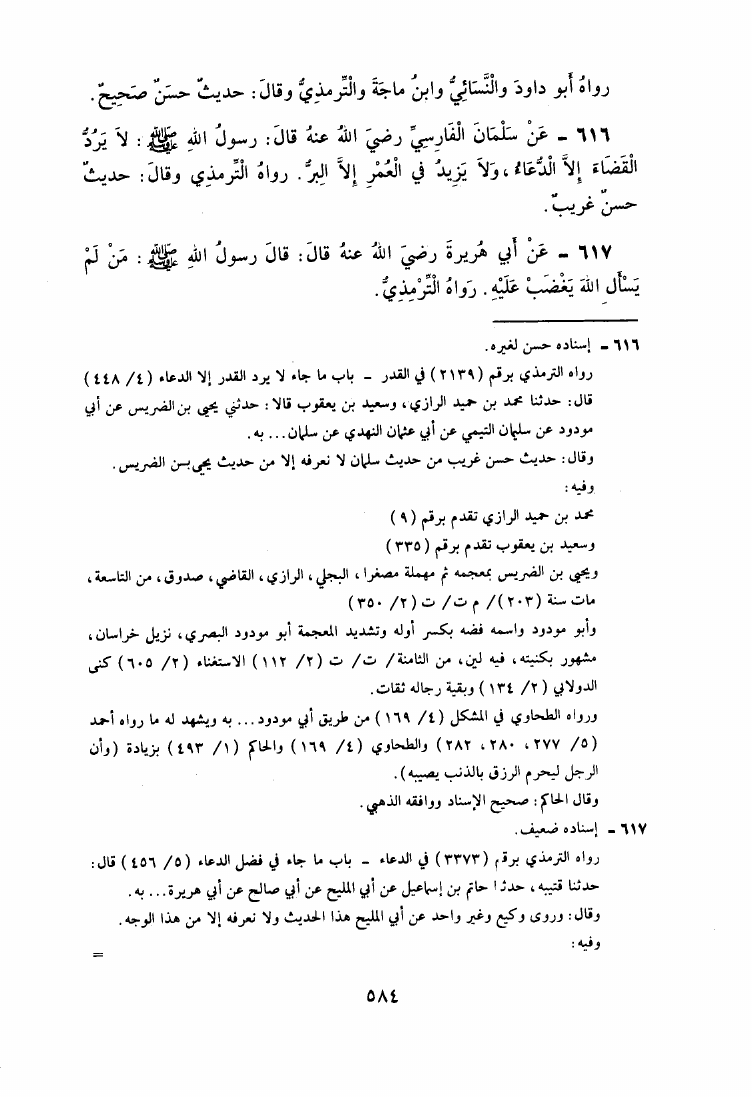 رواهُ أبو داودَ والنَّسَائِيُّ وابنُ ماجَةَ والْتِّرمذيُّ وقالَ: حديثٌ حسَنٌ صَحِيحٌ.
٦١٦ - عَنْ سَلْمَانَ الْفَارِسِيِّ رضيَ اللهُ عنهُ قالَ: رسولُ اللهِ ﷺ: لاَ يَرُدُّ
الْقَضَاءَ إلاَّ الْدُّعَاءُ، وَلاَ يَزِيدُ في الْعُمْرِ إلاَّ البِرُّ. رواهُ الْتِّرمذي وقالَ: حديثٌ
حسنٌ غريبٌ.
٦١٧ - عَنْ أبي هُريرةَ رضيَ اللهُ عنهُ قالَ: قالَ رسولُ اللهِ ﷺ: مَنْ لَمْ
يَسْأَلِ اللهَ يَغْضَبْ عَلَيْهِ. رَواهُ الْتِّرْمِذِيُّ.
٦١٦ - إسناده حسن لغيره.
رواه الترمذي برقم (٢١٣٩) في القدر - باب ما جاء لا يرد القدر إلا الدعاء (٤/ ٤٤٨)
قال: حدثنا محمد بن حميد الرازي، وسعيد بن يعقوب قالا: حدثني يحيى بن الضريس عن أبي
مودود عن سليمان التيمي عن أبي عثمان النهدي عن سلمان... به.
وقال: حديث حسن غريب من حديث سلمان لا نعرفه إلا من حديث يحيى بسن الضريس.
وفيه:
محمد بن حميد الرازي تقدم برقم (٩)
وسعيد بن يعقوب تقدم برقم (٣٣٥)
ويحيى بن الضريس بمعجمه ثم مهملة مصغرا، البجلي، الرازي، القاضي، صدوق، من التاسعة،
مات سنة (٢٠٣)/ م ت/ ت (٢/ ٣٥٠)
وأبو مودود واسمه فضه بكسر أوله وتشديد المعجمة أبو مودود البصري، نزيل خراسان،
مشهور بكنيته، فيه لين، من الثامنة/ ت/ ت (٢/ ١١٢) الاستغناء (٢/ ٦٠٥) كنى
الدولابي (٢/ ١٣٤) وبقية رجاله ثقات.
ورواه الطحاوي في المشكل (٤/ ١٦٩) من طريق أبي مودود... به ويشهد له ما رواه أحمد
(٥/ ٢٧٧، ٢٨٠، ٢٨٢) والطحاوي (٤/ ١٦٩) والحاكم (١/ ٤٩٣) بزيادة (وأن
الرجل ليحرم الرزق بالذنب يصيبه).
وقال الحاكم: صحيح الإسناد ووافقه الذهبي.
٦١٧ - إسناده ضعيف.
رواه الترمذي برقم (٣٣٧٣) في الدعاء - باب ما جاء في فضل الدعاء (٥/ ٤٥٦) قال:
حدثنا قتيبه، حدثنا حاتم بن إسماعيل عن أبي المليح عن أبي صالح عن أبي هريرة... به.
وقال: وروى وكيع وغير واحد عن أبي المليح هذا الحديث ولا نعرفه إلا من هذا الوجه.
وفيه:
=
٥٨٤